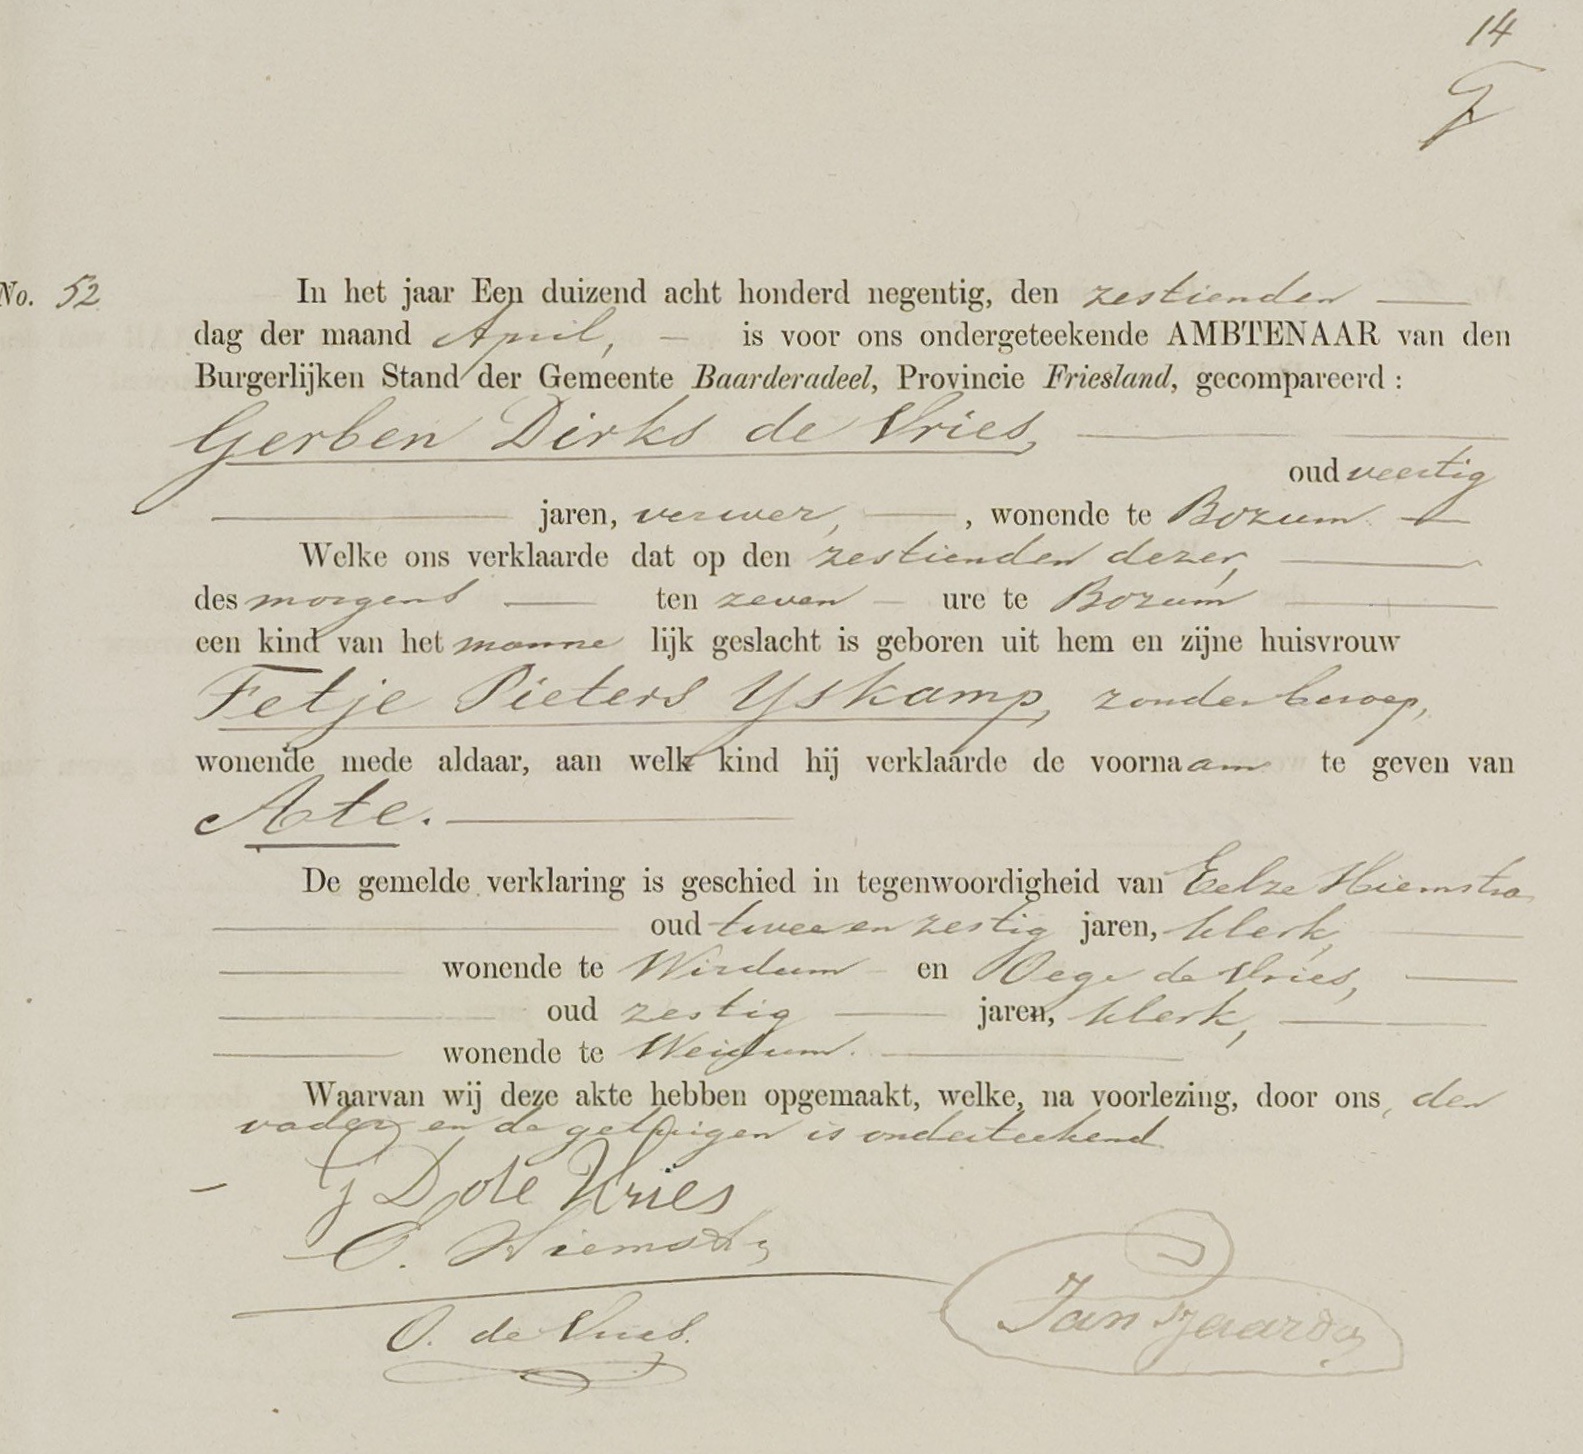 14
No. 52
In het jaar Een duizend acht honderd negentig, den zestienden
dag der maand April, is voor ons ondergeteekende AMBTENAAR van den
Burgerlijken Stand der Gemeente Baarderadeel, Provincie Friesland, gecompareerd :
Gerben Dirks de Vries,
oud veertig
jaren, verwer, , wonende te Bozum
Welke ons verklaarde dat op den zestienden dezer,
des morgens ten zeven ure te Bozum
een kind van het manne lijk geslacht is geboren uit hem en zijne huisvrouw
Fetje Pieters Yskamp, zonder beroep,
wonende mede aldaar, aan welk kind hij verklaarde de voornaam te geven van
Ate.
De gemelde verklaring is geschied in tegenwoordigheid van Eelze Hiemstra
oud twee en zestig jaren, klerk,
wonende te Wirdum en Oege de Vries,
oud zestig jaren, klerk,
wonende te Weidum.
Waarvan wij deze akte hebben opgemaakt, welke, na voorlezing, door ons, den
vader en de getuigen is onderteekend
G D de Vries
E. Hiemstra
O. de Vries.
Jan